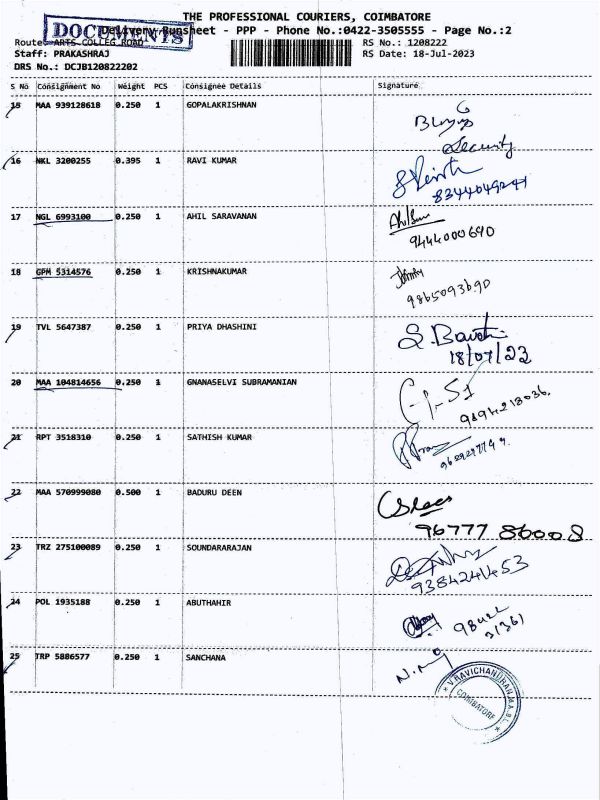 THE PROFESSIONAL COURIERS, COIMBATORE
DOCUMENTS
Delivery Runsheet - PPP - Phone No.:0422-3505555 - Page No.:2
Route: ARTS COLLEG ROAD RS No.: 1208222
Staff: PRAKASHRAJ RS Date: 18-Jul-2023
DRS No.: DCJB120822202
S No Consignment No Weight PCS Consignee Details Signature
15 MAA 939128618 0.250 1 GOPALAKRISHNAN
Security
16 NKL 3200255 0.395 1 RAVI KUMAR
8344049241
17 NGL 6993100 0.250 1 AHIL SARAVANAN
9444000690
18 GPM 5314576 0.250 1 KRISHNAKUMAR
9865093690
19 TVL 5647387 0.250 1 PRIYA DHASHINI
18/07/23
20 MAA 104814656 0.250 1 GNANASELVI SUBRAMANIAN
9894218036.
21 RPT 3518310 0.250 1 SATHISH KUMAR
22 MAA 570999080 0.500 1 BADURU DEEN
96777 86008
23 TRZ 275100089 0.250 1 SOUNDARARAJAN
9384241453
24 POL 1935188 0.250 1 ABUTHAHIR
98422
21361
25 TRP 5886577 0.250 1 SANCHANA
V.RAVICHANDRAN,M.A.,B.L.
COIMBATORE